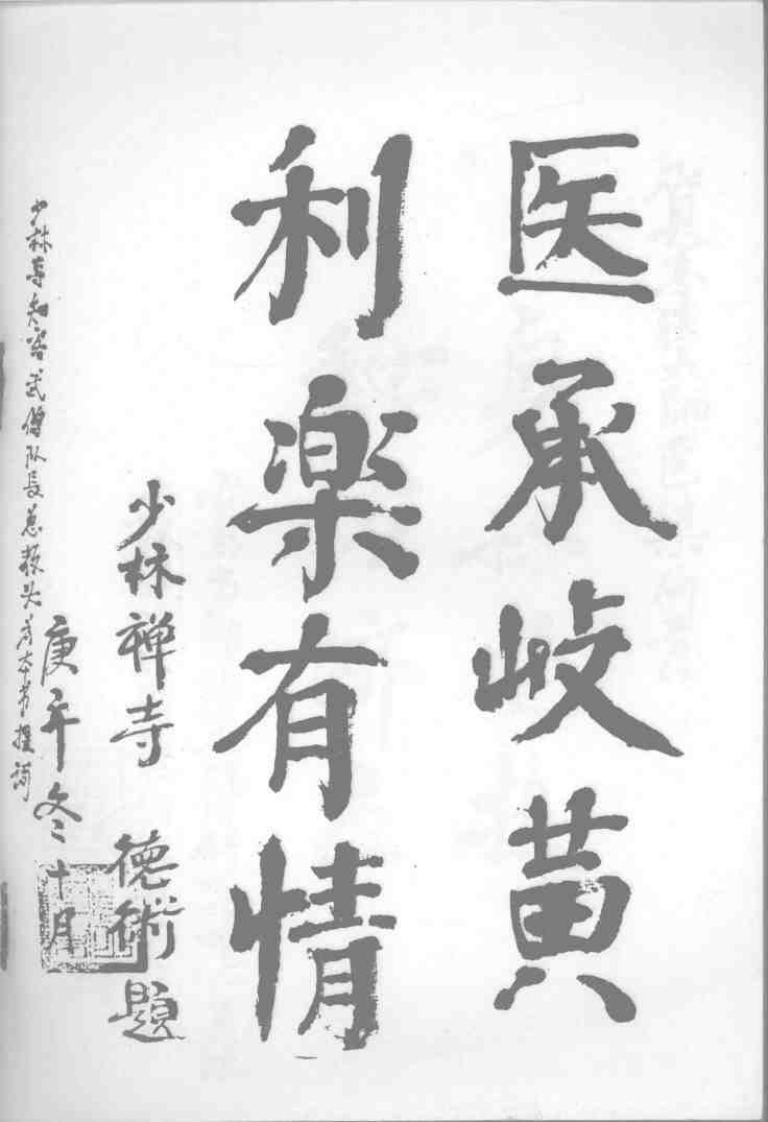 医承岐黄
利楽有情
少林禅寺 德術題
庚午冬十月
少林寺知客武僧队长总教头